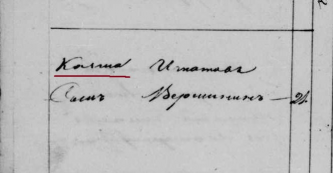 Козма Игнатова
Сынъ Вершининъ — 21.